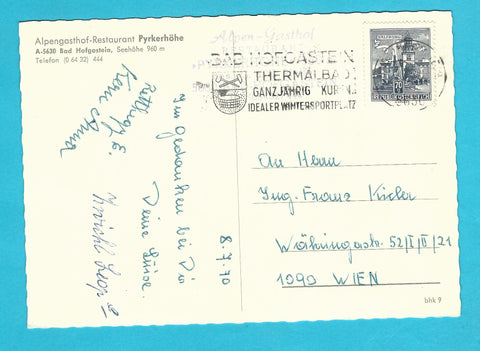 Alpengasthof-Restaurant Pyrkerhöhe
A-5630 Bad Hofgastein, Seehöhe 960 m
Telefon (0 64 32) 444
Alpen-Gasthof
BAD HOFGASTEIN
THERMALBAD
GANZJÄHRIG KUREN
IDEALER WINTERSPORTPLATZ
REPUBLIK ÖSTERREICH
8.7.70
In Gedanken bei Dir
Deine Luise.
An Herrn
Ing. Franz Kieler
Währingerstr. 52/I/II/21
1090 WIEN
bhk 9